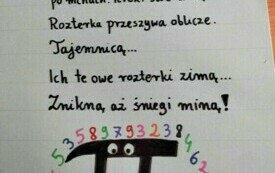 Rozterka przeszywa oblicze.
Tajemnicą...
Ich te owe rozterki zimą...
Znikną, aż śniegi miną!
5 3 5 8 9 7 9 3 2 3 8 4 6 2